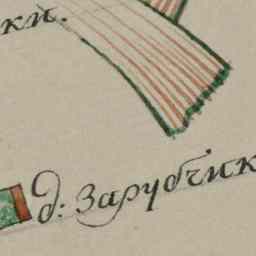 ки.
д: Зарубчик